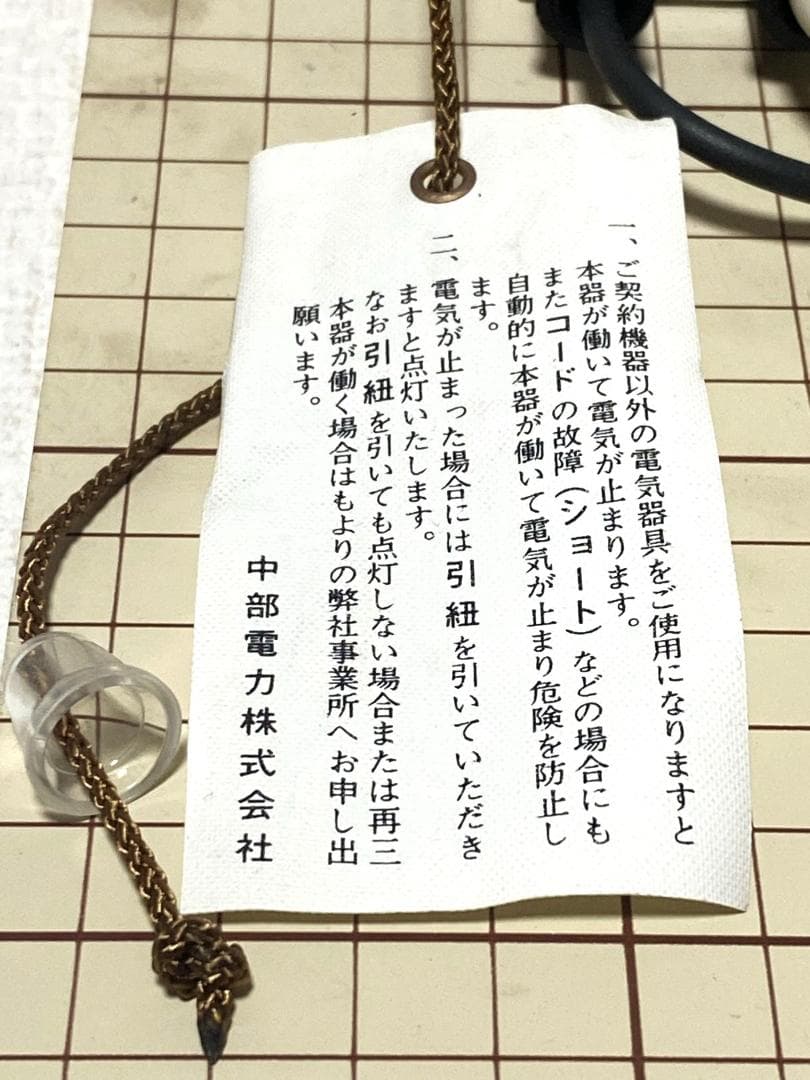 一、ご契約機器以外の電気器具をご使用になりますと
本器が働いて電気が止まります。
またコードの故障(ショート)などの場合にも
自動的に本器が働いて電気が止まり危険を防止し
ます。
二、電気が止まった場合には引紐を引いていただき
ますと点灯いたします。
なお引紐を引いても点灯しない場合または再三
本器が働く場合はもよりの弊社事業所へお申し出
願います。
中部電力株式会社